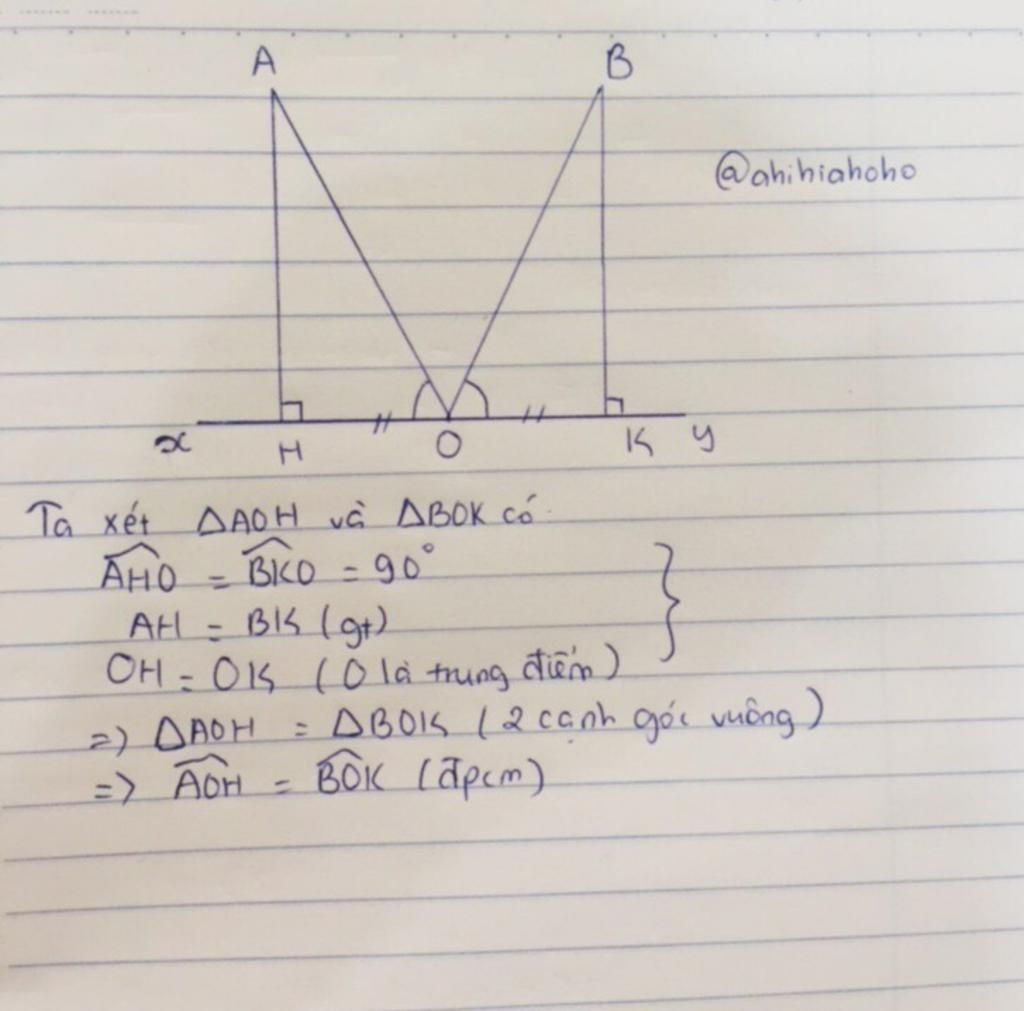 A
B
@ahihiahoho
x
H
O
K
y
Ta xét △AOH và △BOK có:
AHO = BKO = 90°
AH = BK (gt)
OH = OK (O là trung điểm)
=> △AOH = △BOK (2 cạnh góc vuông)
=> AOH = BOK (đpcm)